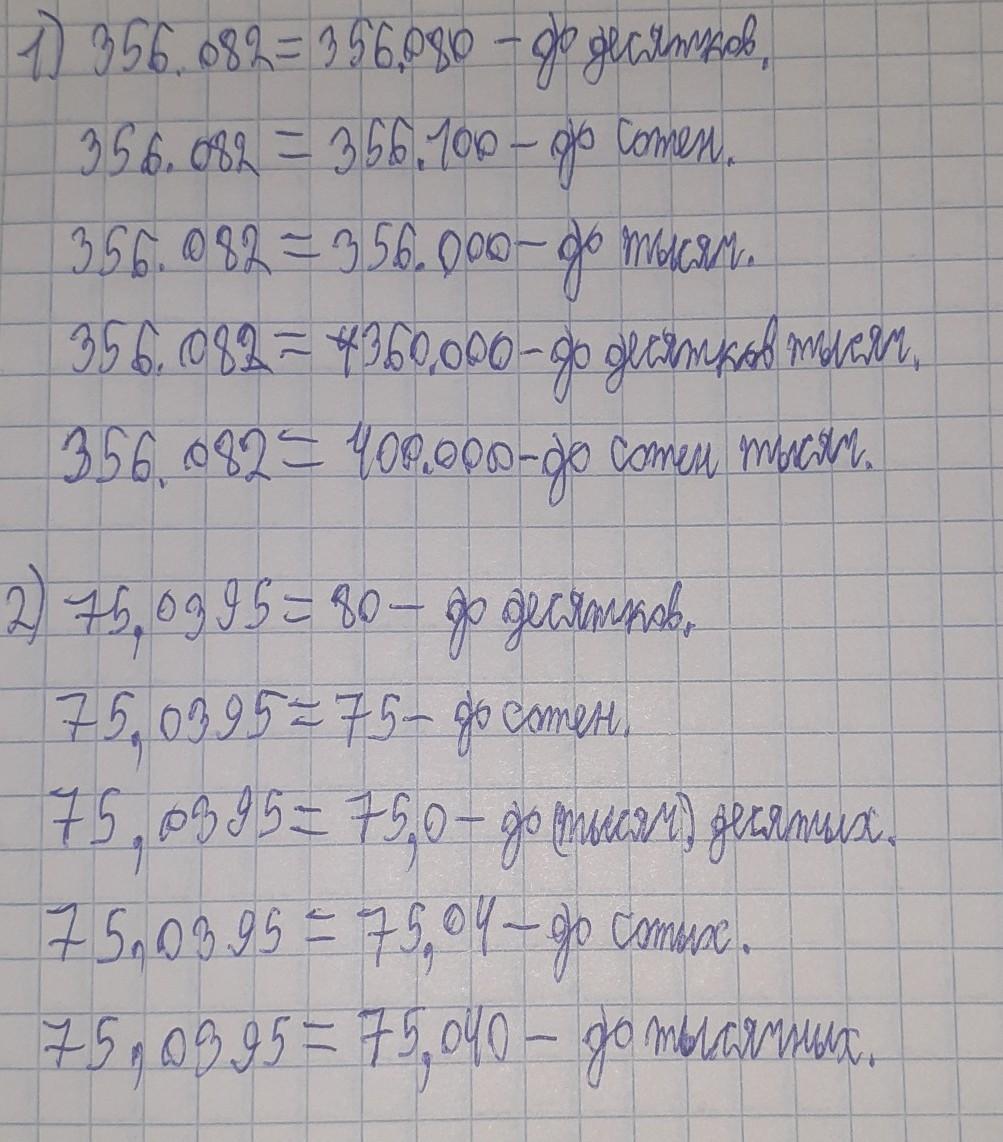 1) 356.082 = 356.080 - до десятков.
356.082 = 356.100 - до сотен.
356.082 = 356.000 - до тысяч.
356.082 = 360.000 - до десятков тысяч.
356.082 = 400.000 - до сотен тысяч.
2) 75,0395 = 80 - до десятков.
75,0395 = 75 - до сотен.
75,0395 = 75,0 - до (тысяч) десятых.
75,0395 = 75,04 - до сотых.
75,0395 = 75,040 - до тысячных.